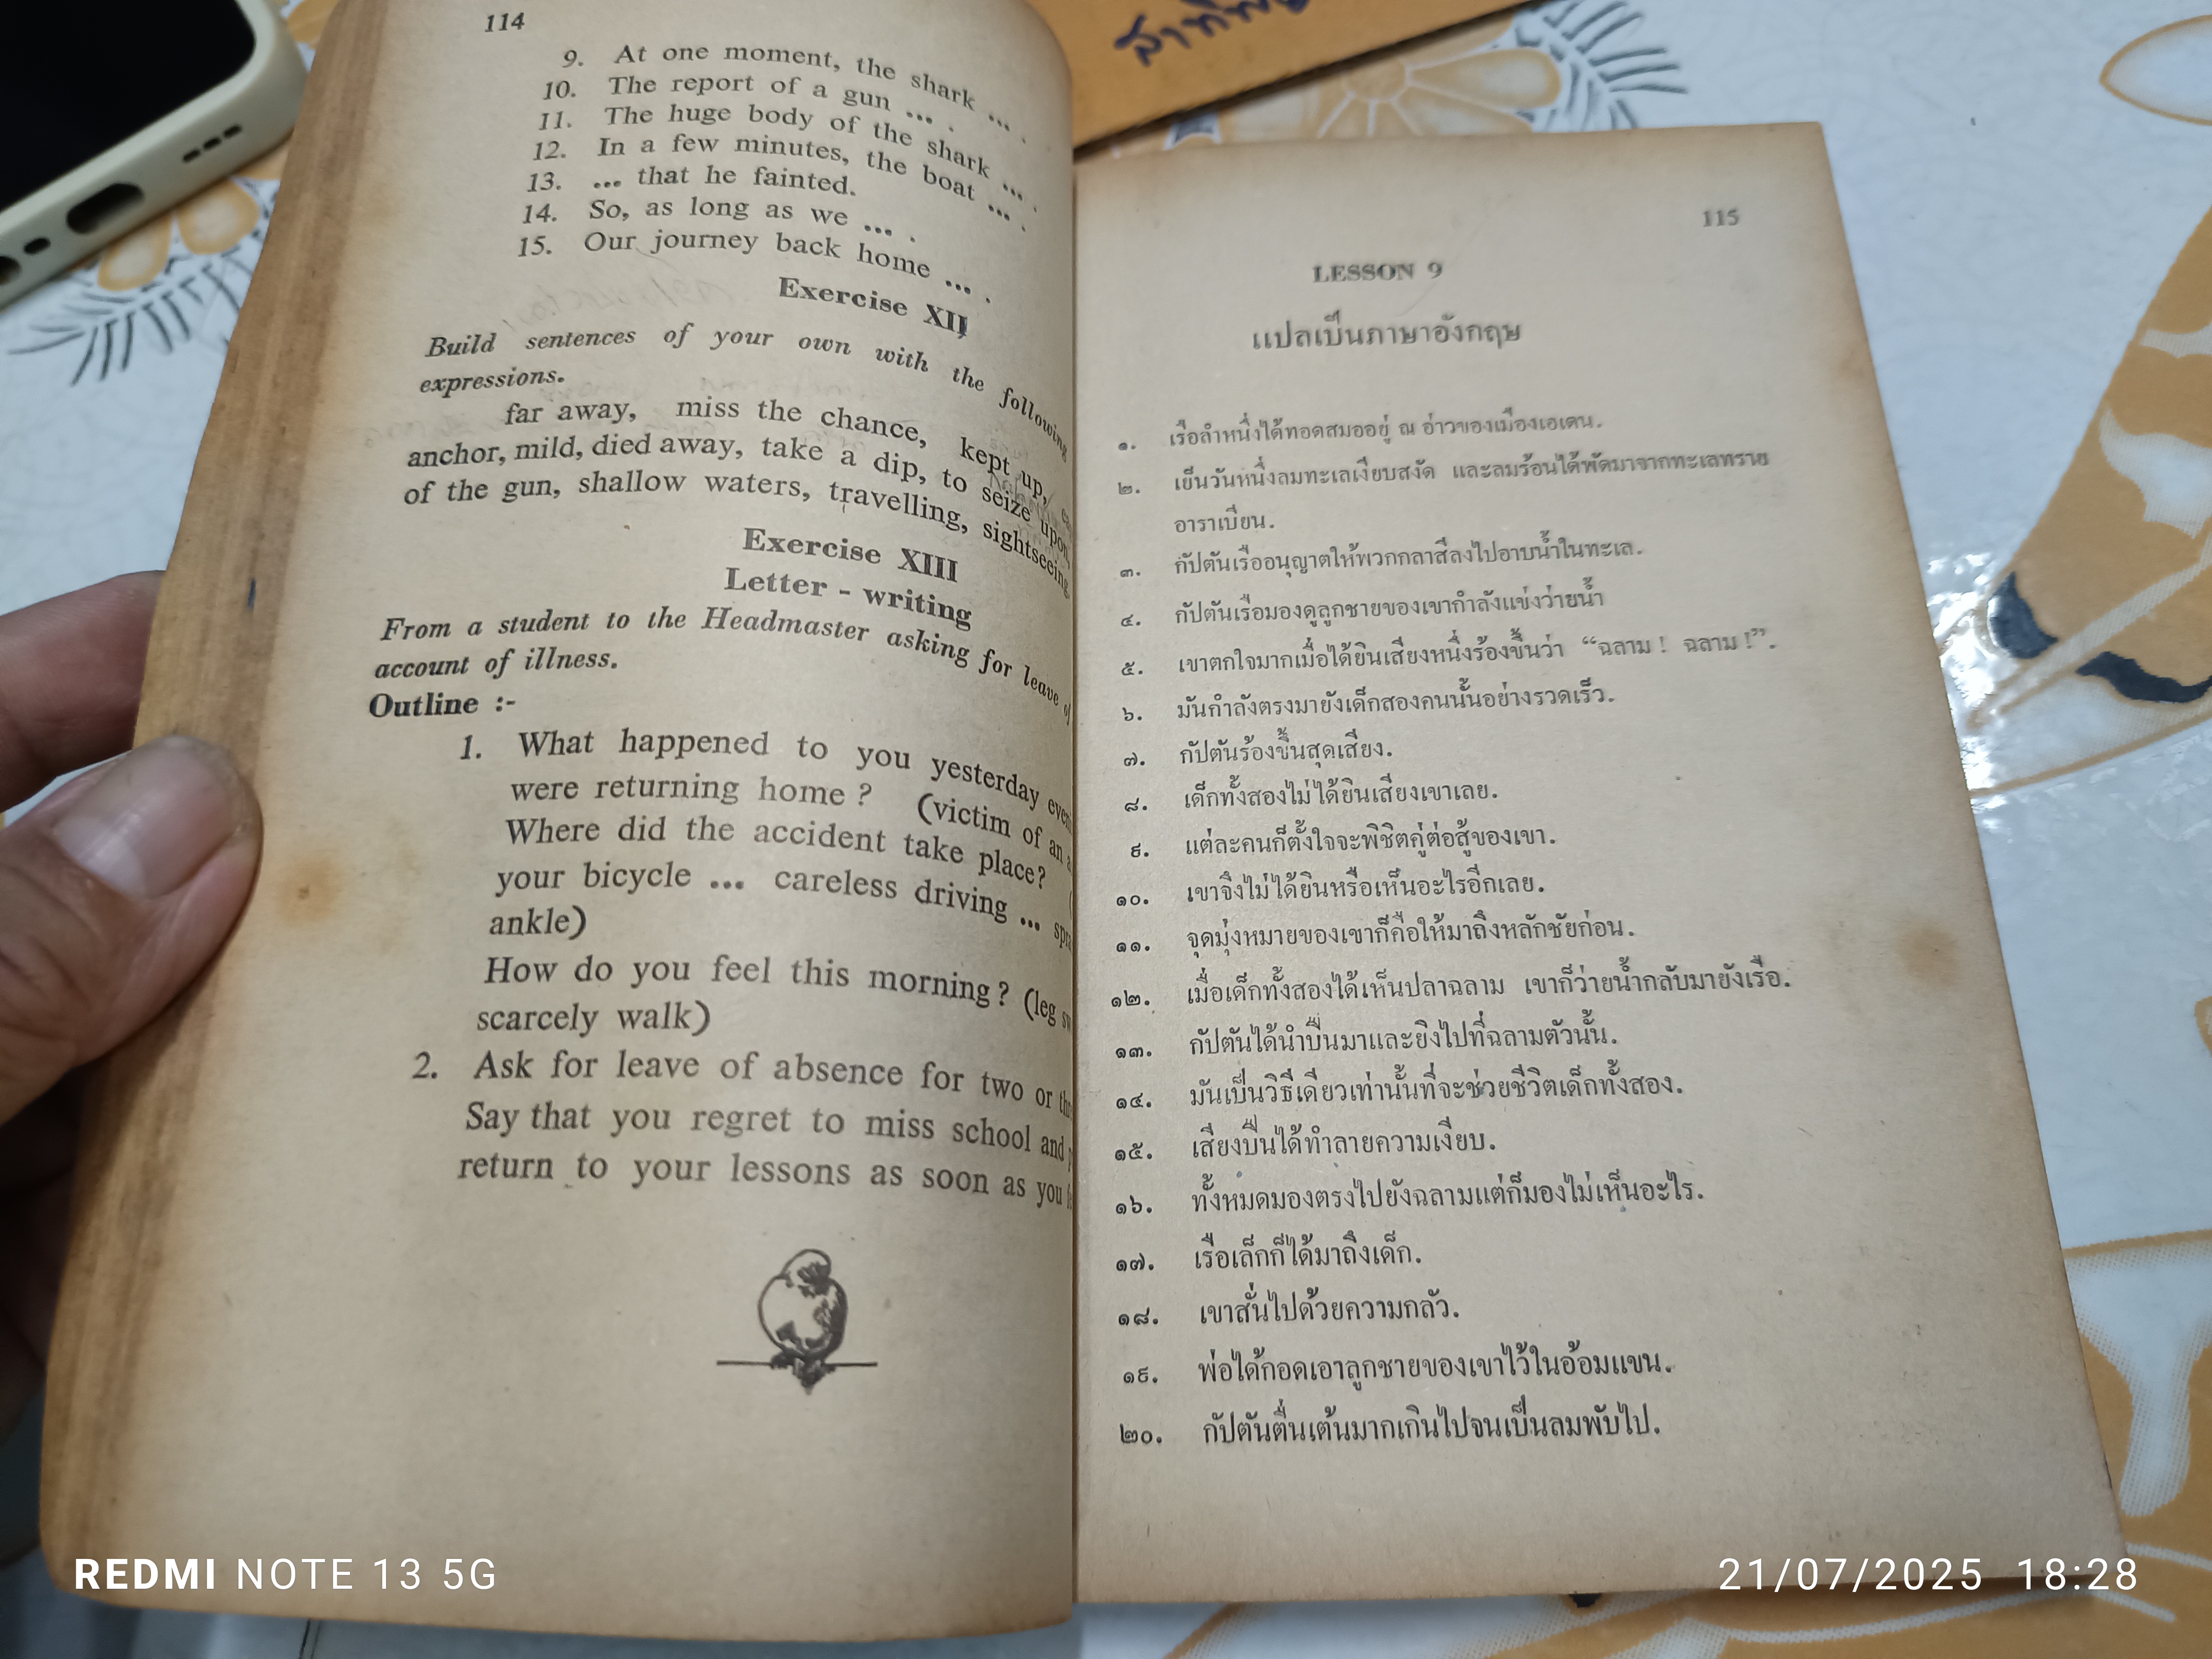 สาทิพย์
114
9. At one moment, the shark ... .
10. The report of a gun ... .
11. The huge body of the shark ... .
12. In a few minutes, the boat ... .
13. ... that he fainted.
14. So, as long as we ... .
15. Our journey back home ... .
Exercise XII
Build sentences of your own with the following
expressions.
far away, miss the chance, kept up,
anchor, mild, died away, take a dip, to seize upon,
of the gun, shallow waters, travelling, sightseeing.
Exercise XIII
Letter - writing
From a student to the Headmaster asking for leave
account of illness.
Outline :-
1. What happened to you yesterday
were returning home ? (victim of an
Where did the accident take place?
your bicycle ... careless driving ...
ankle)
How do you feel this morning ? (leg
scarcely walk)
2. Ask for leave of absence for two or
Say that you regret to miss school and
return to your lessons as soon as you
115
LESSON 9
แปลเป็นภาษาอังกฤษ
๑. เรือลำหนึ่งได้ทอดสมออยู่ ณ อ่าวของเมืองเอเดน.
๒. เย็นวันหนึ่งลมทะเลเงียบสงัด และลมร้อนได้พัดมาจากทะเลทราย
อาราเบียน.
๓. กัปตันเรืออนุญาตให้พวกกลาสีลงไปอาบน้ำในทะเล.
๔. กัปตันเรือมองดูลูกชายของเขากำลังแข่งว่ายน้ำ
๕. เขาตกใจมากเมื่อได้ยินเสียงหนึ่งร้องขึ้นว่า “ฉลาม ! ฉลาม !”.
๖. มันกำลังตรงมายังเด็กสองคนนั้นอย่างรวดเร็ว.
๗. กัปตันร้องขึ้นสุดเสียง.
๘. เด็กทั้งสองไม่ได้ยินเสียงเขาเลย.
๙. แต่ละคนก็ตั้งใจจะพิชิตคู่ต่อสู้ของเขา.
๑๐. เขาจึงไม่ได้ยินหรือเห็นอะไรอีกเลย.
๑๑. จุดมุ่งหมายของเขาก็คือให้มาถึงหลักชัยก่อน.
๑๒. เมื่อเด็กทั้งสองได้เห็นปลาฉลาม เขาก็ว่ายน้ำกลับมายังเรือ.
๑๓. กัปตันได้นำปืนมาและยิงไปที่ฉลามตัวนั้น.
๑๔. มันเป็นวิธีเดียวเท่านั้นที่จะช่วยชีวิตเด็กทั้งสอง.
๑๕. เสียงปืนได้ทำลายความเงียบ.
๑๖. ทั้งหมดมองตรงไปยังฉลามแต่ก็มองไม่เห็นอะไร.
๑๗. เรือเล็กก็ได้มาถึงเด็ก.
๑๘. เขาสั่นไปด้วยความกลัว.
๑๙. พ่อได้กอดเอาลูกชายของเขาไว้ในอ้อมแขน.
๒๐. กัปตันตื่นเต้นมากเกินไปจนเป็นลมพับไป.
REDMI NOTE 13 5G
21/07/2025 18:28